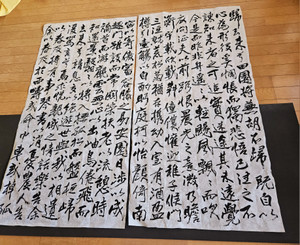 歸去來兮田園將蕪胡不歸既自以
心為形役奚惆悵而獨悲悟已往之不
諫知來者之可追實迷途其未遠覺
今是而昨非舟遙遙以輕颺風飄飄而吹
衣問征夫以前路恨晨光之熹微乃瞻
衡宇載欣載奔僮僕歡迎稚子候門
三徑就荒松菊猶存攜幼入室有酒盈
樽引壺觴以自酌眄庭柯以怡顏倚南
窗以寄傲審容膝之易安園日涉以成
趣門雖設而常關策扶老以流憩時
矯首而遐觀雲無心以出岫鳥倦飛而
知還景翳翳以將入撫孤松而盤桓
歸去來兮請息交以絕遊世與我
復駕言兮焉求悅親戚之情話樂琴書
以消憂農人告余以春及將有事
於西疇或命巾車或棹孤